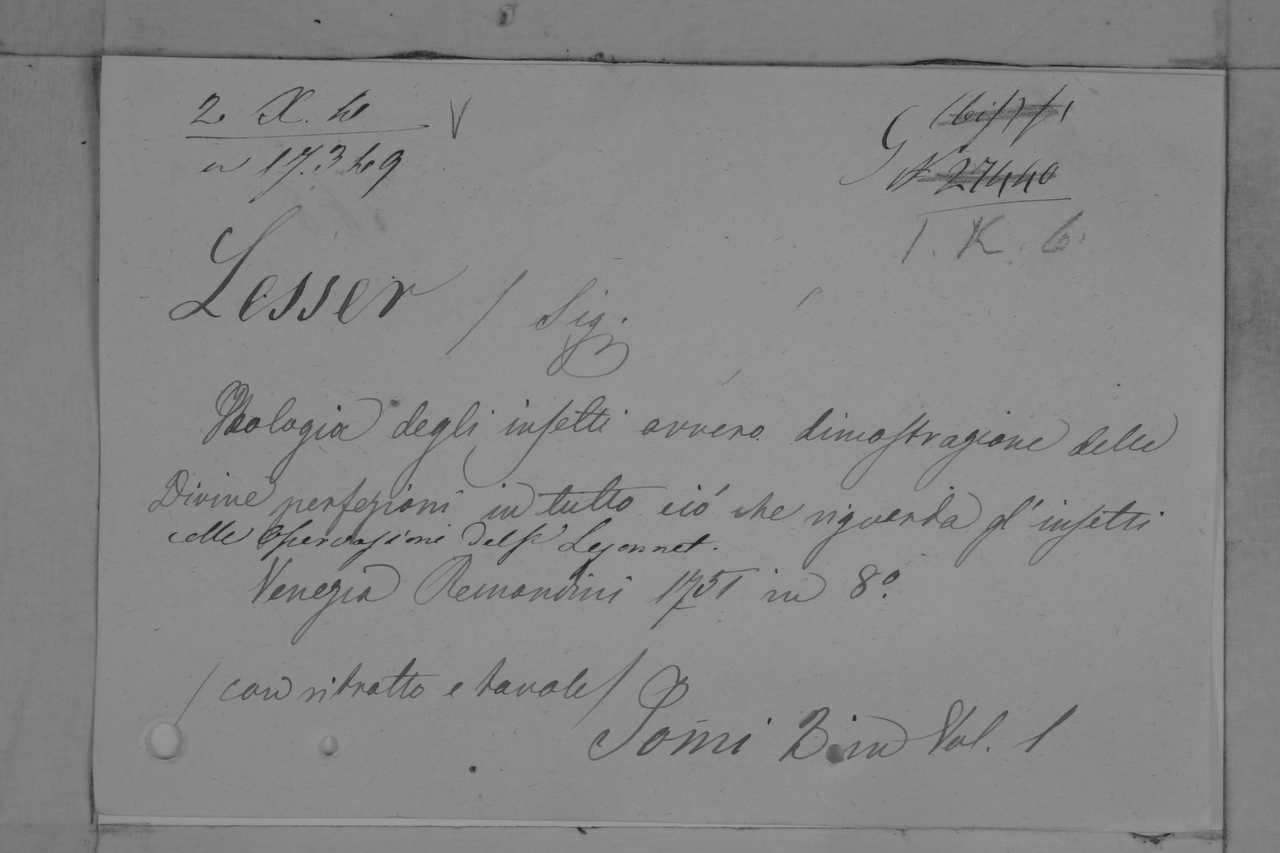 2. X. 40
17.349
27440
1. K. 6.
Lesser / Sig.
Teologia degli insetti ovvero dimostrazione delle
Divine perfezioni in tutto ciò che riguarda gl'insetti
colle Osservazioni del Sr Lejonnet.
Venezia Remondini 1751 in 8º
/ con ritratto e tavole /
Tomi 2 in Vol. 1